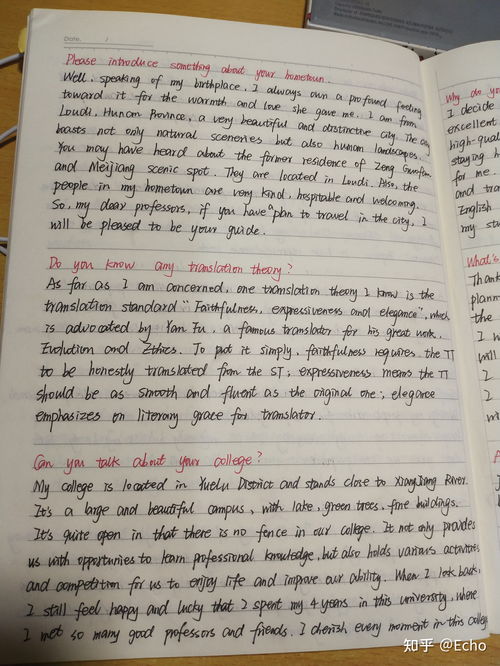 Date. /
Please introduce something about your hometown.
Well, speaking of my birthplace, I always own a profound feeling
toward it for the warmth and love she gave me. I am from
Loudi, Hunan Province, a very beautiful and distinctive city. The city
boasts not only natural sceneries but also human landscapes.
You may have heard about the former residence of Zeng Guofan
and Meijiang scenic spot. They are located in Loudi. Also, the
people in my hometown are very kind, hospitable and welcoming.
So, my dear professors, if you have a plan to travel in the city, I
will be pleased to be your guide.
Do you know any translation theory?
As far as I am concerned, one translation theory I know is the
translation standard "Faithfulness, expressiveness and elegance", which
is advocated by Yan Fu, a famous translator for his great work,
Evolution and Ethics. To put it simply, faithfulness requires the TT
to be honestly translated from the ST; expressiveness means the TT
should be as smooth and fluent as the original one; elegance
emphasizes on literary grace for translator.
Can you talk about your college?
My college is located in Yuelu District and stands close to XiangJiang River.
It's a large and beautiful campus, with lake, green trees, fine buildings.
It's quite open in that there is no fence in our college. It not only provides
us with opportunies to learn professional knowledge, but also holds various activities
and competition for us to enjoy life and improve our ability. When I look back,
I still feel happy and lucky that I spent my 4 years in this university, where
I met so many good professors and friends. I cherish every moment in this college
Why do you
I decide
excellent
high-qual
staying h
for me.
and tra
English
my stu
What's
Thank
planni
the
I w
I
I
wi
知乎 @Echo